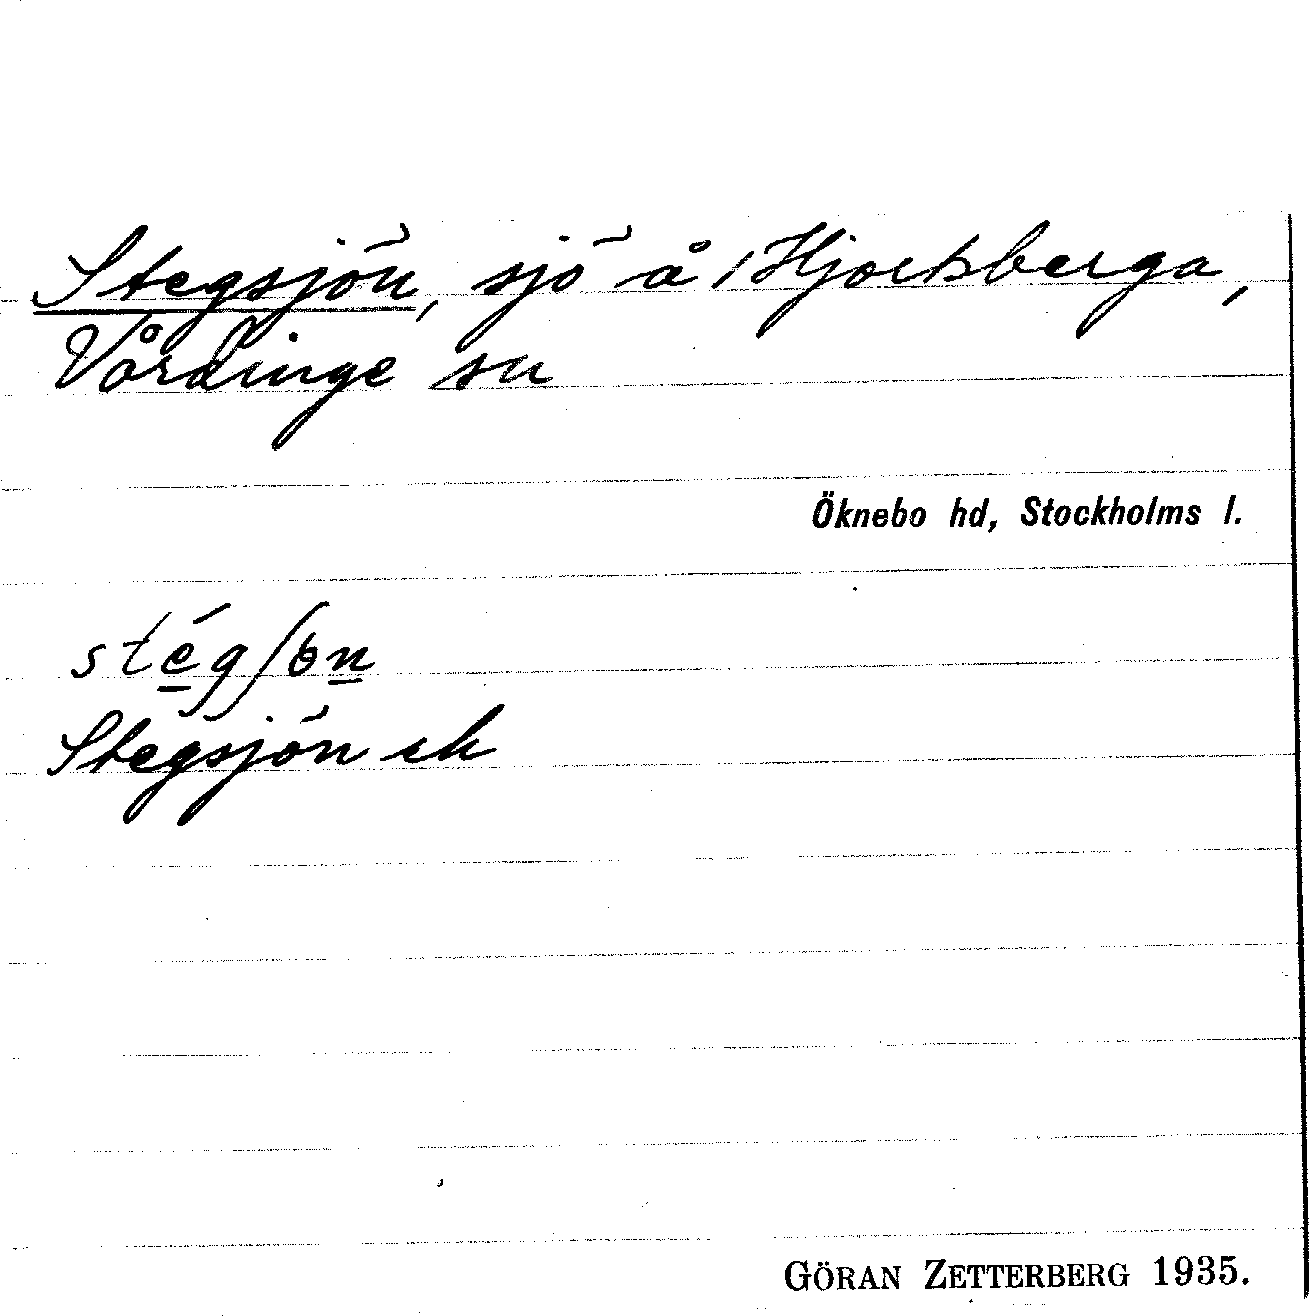 Stegsjön, sjö å Hjortsberga,
Vårdinge sn
Öknebo hd, Stockholms l.
Stegsjön ek
GÖRAN ZETTERBERG 1935.